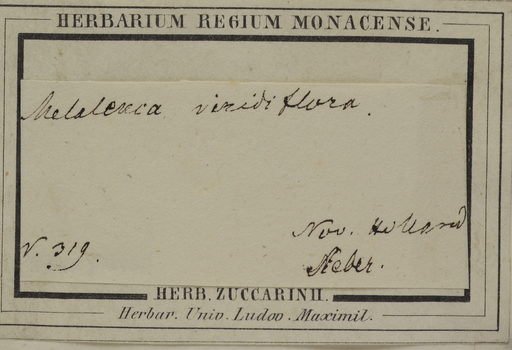 HERBARIUM REGIUM MONACENSE.
Melaleuca viridiflora.
Nov. Holland
N. 319.
Sieber.
HERB. ZUCCARINII.
Herbar. Univ. Ludov. Maximil.